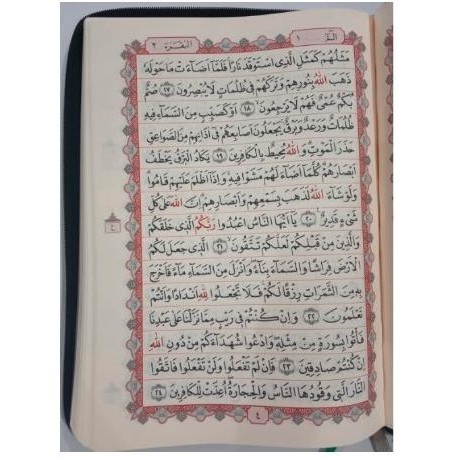 الٓمٓ ١ البقرة ٢
مَثَلُهُمْ كَمَثَلِ الَّذِي اسْتَوْقَدَ نَارًا فَلَمَّا أَضَاءَتْ مَا حَوْلَهُ
ذَهَبَ اللهُ بِنُورِهِمْ وَتَرَكَهُمْ فِي ظُلُمَاتٍ لَا يُبْصِرُونَ ﴿١٧﴾ صُمٌّ
بُكْمٌ عُمْيٌ فَهُمْ لَا يَرْجِعُونَ ﴿١٨﴾ أَوْ كَصَيِّبٍ مِنَ السَّمَاءِ فِيهِ
ظُلُمَاتٌ وَرَعْدٌ وَبَرْقٌ يَجْعَلُونَ أَصَابِعَهُمْ فِي آذَانِهِمْ مِنَ الصَّوَاعِقِ
حَذَرَ الْمَوْتِ وَاللهُ مُحِيطٌ بِالْكَافِرِينَ ﴿١٩﴾ يَكَادُ الْبَرْقُ يَخْطَفُ
أَبْصَارَهُمْ كُلَّمَا أَضَاءَ لَهُمْ مَشَوْا فِيهِ وَإِذَا أَظْلَمَ عَلَيْهِمْ قَامُوا
وَلَوْ شَاءَ اللهُ لَذَهَبَ بِسَمْعِهِمْ وَأَبْصَارِهِمْ إِنَّ اللهَ عَلَى كُلِّ
شَيْءٍ قَدِيرٌ ﴿٢٠﴾ يَا أَيُّهَا النَّاسُ اعْبُدُوا رَبَّكُمُ الَّذِي خَلَقَكُمْ
وَالَّذِينَ مِنْ قَبْلِكُمْ لَعَلَّكُمْ تَتَّقُونَ ﴿٢١﴾ الَّذِي جَعَلَ لَكُمُ
الْأَرْضَ فِرَاشًا وَالسَّمَاءَ بِنَاءً وَأَنْزَلَ مِنَ السَّمَاءِ مَاءً فَأَخْرَجَ
بِهِ مِنَ الثَّمَرَاتِ رِزْقًا لَكُمْ فَلَا تَجْعَلُوا لِلهِ أَنْدَادًا وَأَنْتُمْ
تَعْلَمُونَ ﴿٢٢﴾ وَإِنْ كُنْتُمْ فِي رَيْبٍ مِمَّا نَزَّلْنَا عَلَى عَبْدِنَا
فَأْتُوا بِسُورَةٍ مِنْ مِثْلِهِ وَادْعُوا شُهَدَاءَكُمْ مِنْ دُونِ اللهِ
إِنْ كُنْتُمْ صَادِقِينَ ﴿٢٣﴾ فَإِنْ لَمْ تَفْعَلُوا وَلَنْ تَفْعَلُوا فَاتَّقُوا
النَّارَ الَّتِي وَقُودُهَا النَّاسُ وَالْحِجَارَةُ أُعِدَّتْ لِلْكَافِرِينَ ﴿٢٤﴾
٤